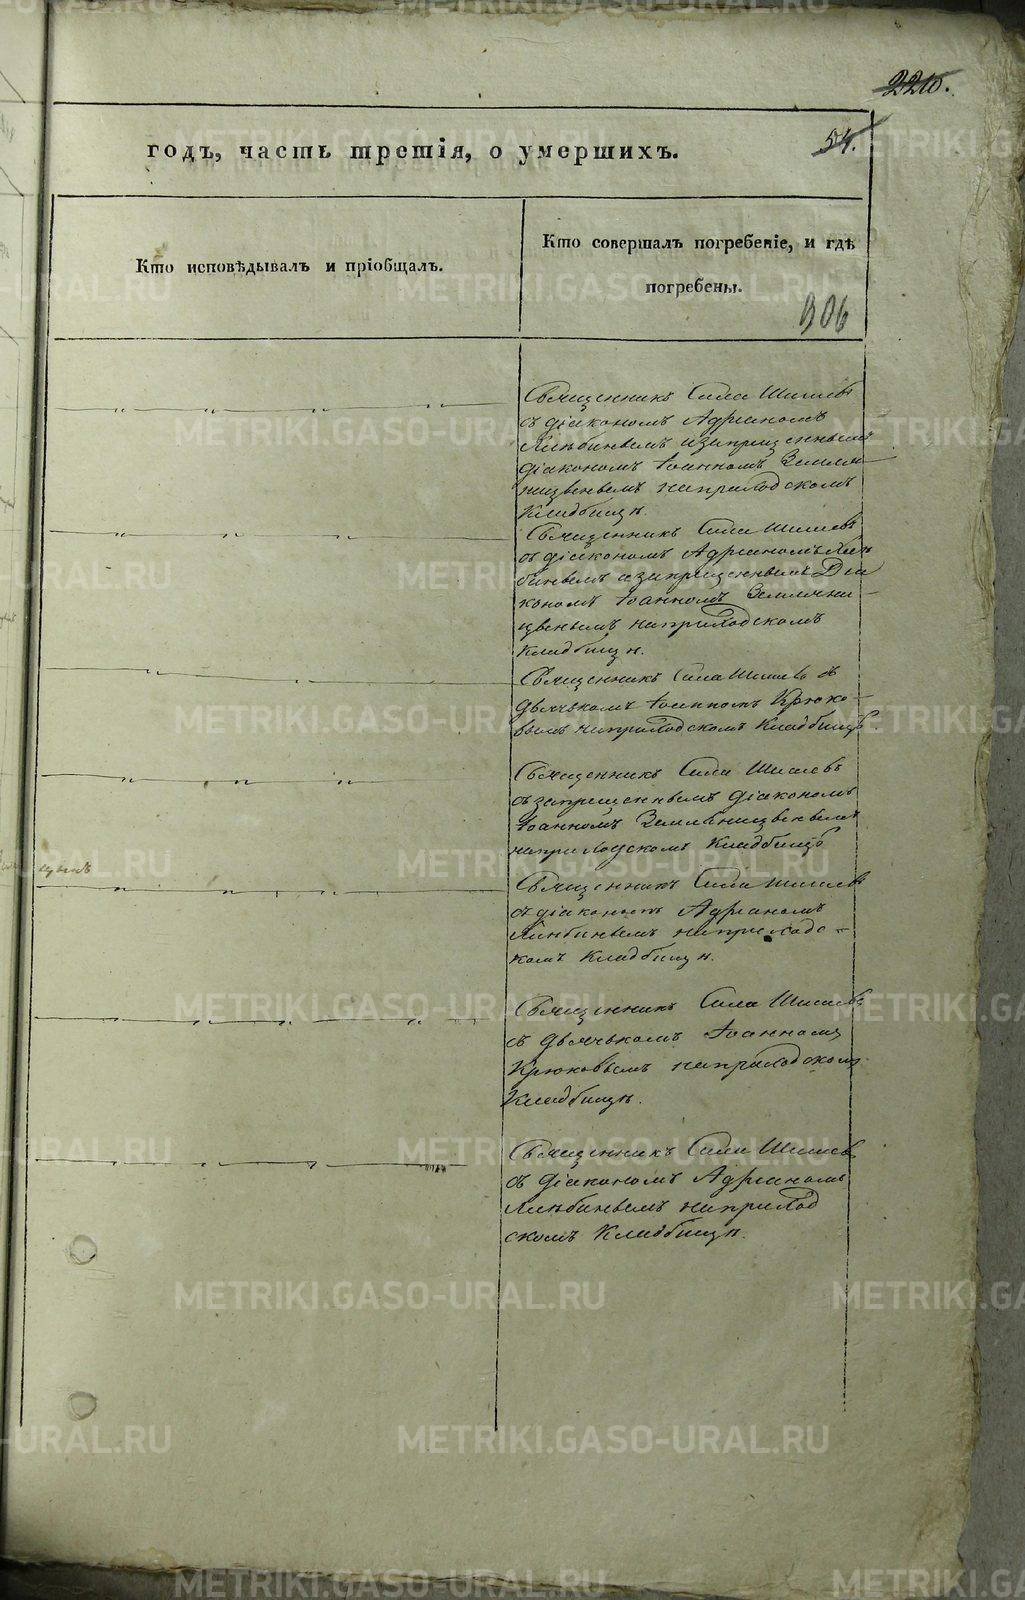 220.
54.
годъ, часть третія, о умершихъ.
Кто исповѣдывалъ и пріобщалъ.
Кто совершалъ погребеніе, и гдѣ
погребены.
906
Священникъ Сила Шишевъ
съ діакономъ Адріаномъ
и запрещеннымъ
діакономъ Іоанномъ Землян
ницынымъ на приходскомъ
кладбищѣ.
Священникъ Сила Шишевъ
съ діакономъ Адріаномъ
и запрещеннымъ Діа
кономъ Іоанномъ Земляни
цынымъ на приходскомъ
кладбищѣ.
Священникъ Сила Шишевъ съ
дьячькомъ Іоанномъ Крюко
вымъ на приходскомъ кладбищѣ.
Священникъ Сила Шишевъ
съ запрещеннымъ діакономъ
Іоанномъ Земляницынымъ
на приходскомъ кладбищѣ
Священникъ Сила Шишевъ
съ діакономъ Адріаномъ
на приходс
комъ кладбищѣ.
Священникъ Сила Шишевъ
съ дьячькомъ Іоанномъ
Крюковымъ на приходскомъ
кладбищѣ.
Священникъ Сила Шишевъ
съ діакономъ Адріаномъ
на приход
скомъ кладбищѣ.
METRIKI.GASO-URAL.RU